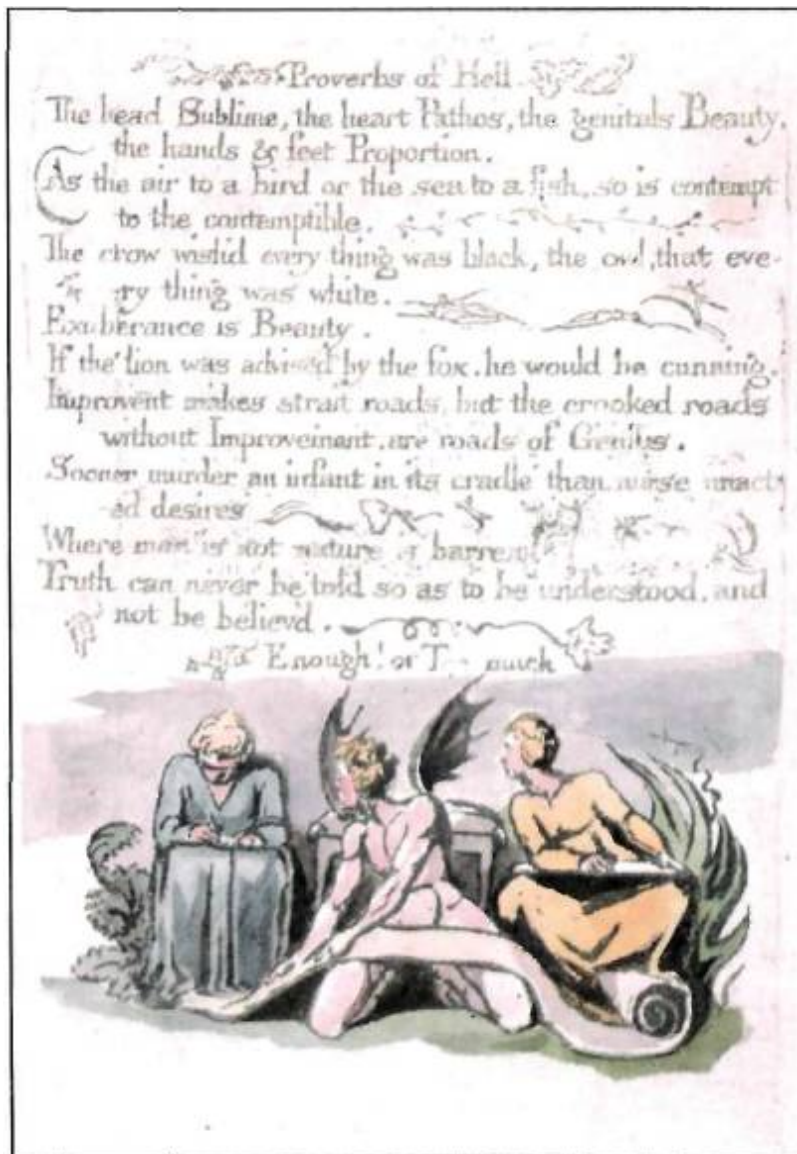 Proverbs of Hell.
The head Sublime, the heart Pathos, the genitals Beauty,
the hands & feet Proportion.
As the air to a bird or the sea to a fish, so is contempt
to the contemptible.
The crow wish'd every thing was black, the owl, that eve-
ry thing was white.
Exuberance is Beauty.
If the lion was advised by the fox. he would be cunning.
Improvent makes strait roads, but the crooked roads
without Improvement, are roads of Genius.
Sooner murder an infant in its cradle than nurse unact-
ed desires
Where man is not nature is barren.
Truth can never be told so as to be understood, and
not be believ'd.
Enough! or Too much